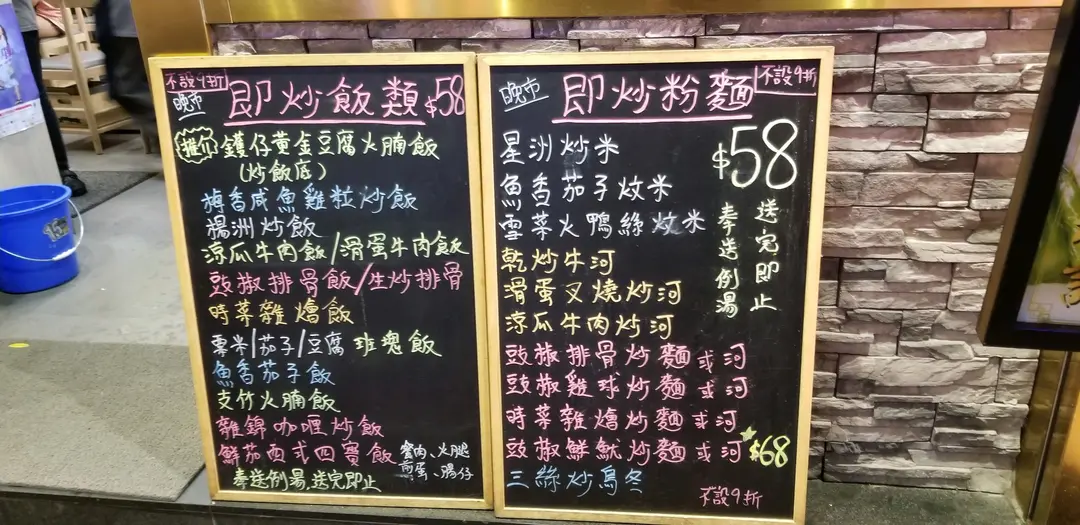 不設9折
晚市 即炒飯類 $58
推介 鑊仔黃金豆腐火腩飯
(炒飯底)
搏香咸魚雞粒炒飯
楊洲炒飯
涼瓜牛肉飯/滑蛋牛肉飯
豉椒排骨飯/生炒排骨
時菜雜燴飯
粟米/茄子/豆腐 班塊飯
魚香茄子飯
支竹火腩飯
雜錦咖喱炒飯
鮮茄西式四寶飯 蟹肉、火腿
煎蛋、腸仔
奉送例湯,送完即止
晚市 即炒粉麵 不設9折
$58
星洲炒米
魚香茄子炆米
雪菜火鴨絲炆米
乾炒牛河
滑蛋叉燒炒河
涼瓜牛肉炒河
豉椒排骨炒麵或河
豉椒雞球炒麵或河
時菜雜燴炒麵或河
豉椒鮮魷炒麵或河 $68
三絲炒烏冬
奉送例湯
送完即止
不設9折